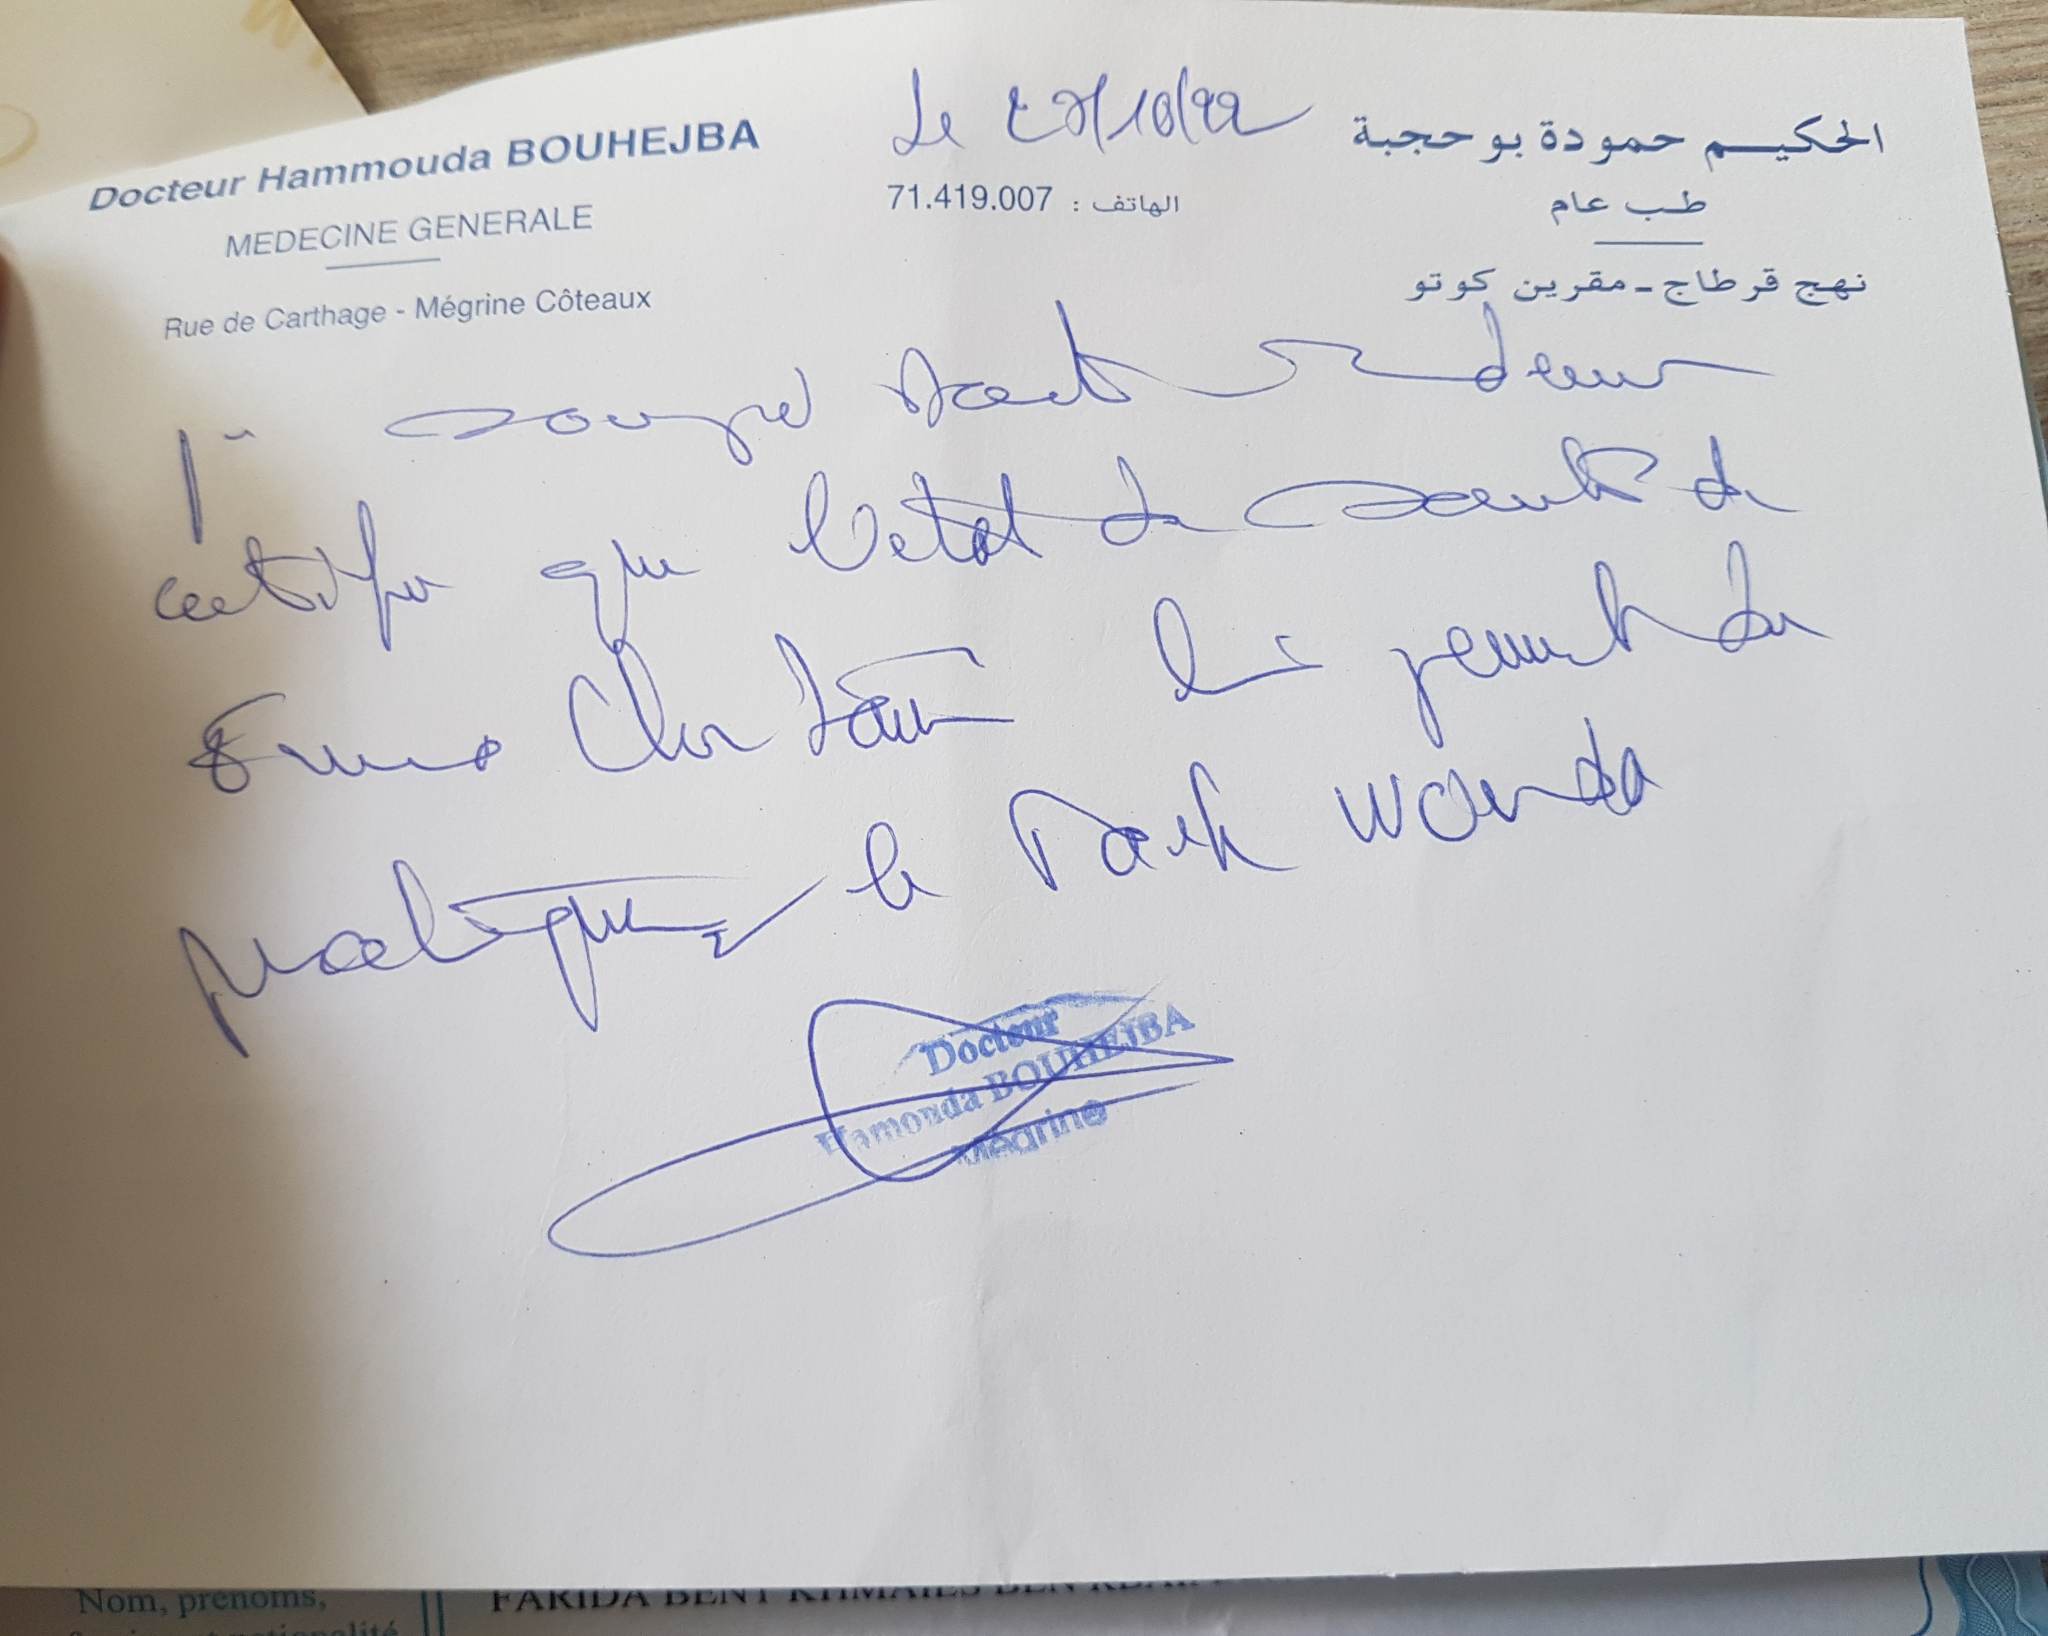 Docteur Hammouda BOUHEJBA
MEDECINE GENERALE
Rue de Carthage - Mégrine Côteaux
Le 27/10/22
الهاتف : 71.419.007
الحكيم حمودة بوحجبة
طب عام
نهج قرطاج - مقرين كوتو
Je soussigné Docteur
certifie que l'état de santé de
lui permet de
pratiquer le
Docteur
Hamouda BOUHEJBA
Mégrine
Nom, prénoms,
FARIDA BENT KHMAIES BEN